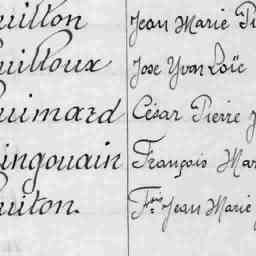 uillon Jean Marie Pi
uilloux Jose Yvon Loïc
uimard César Pierre J
ingouain François Mar
uiton. Fois Jean Marie